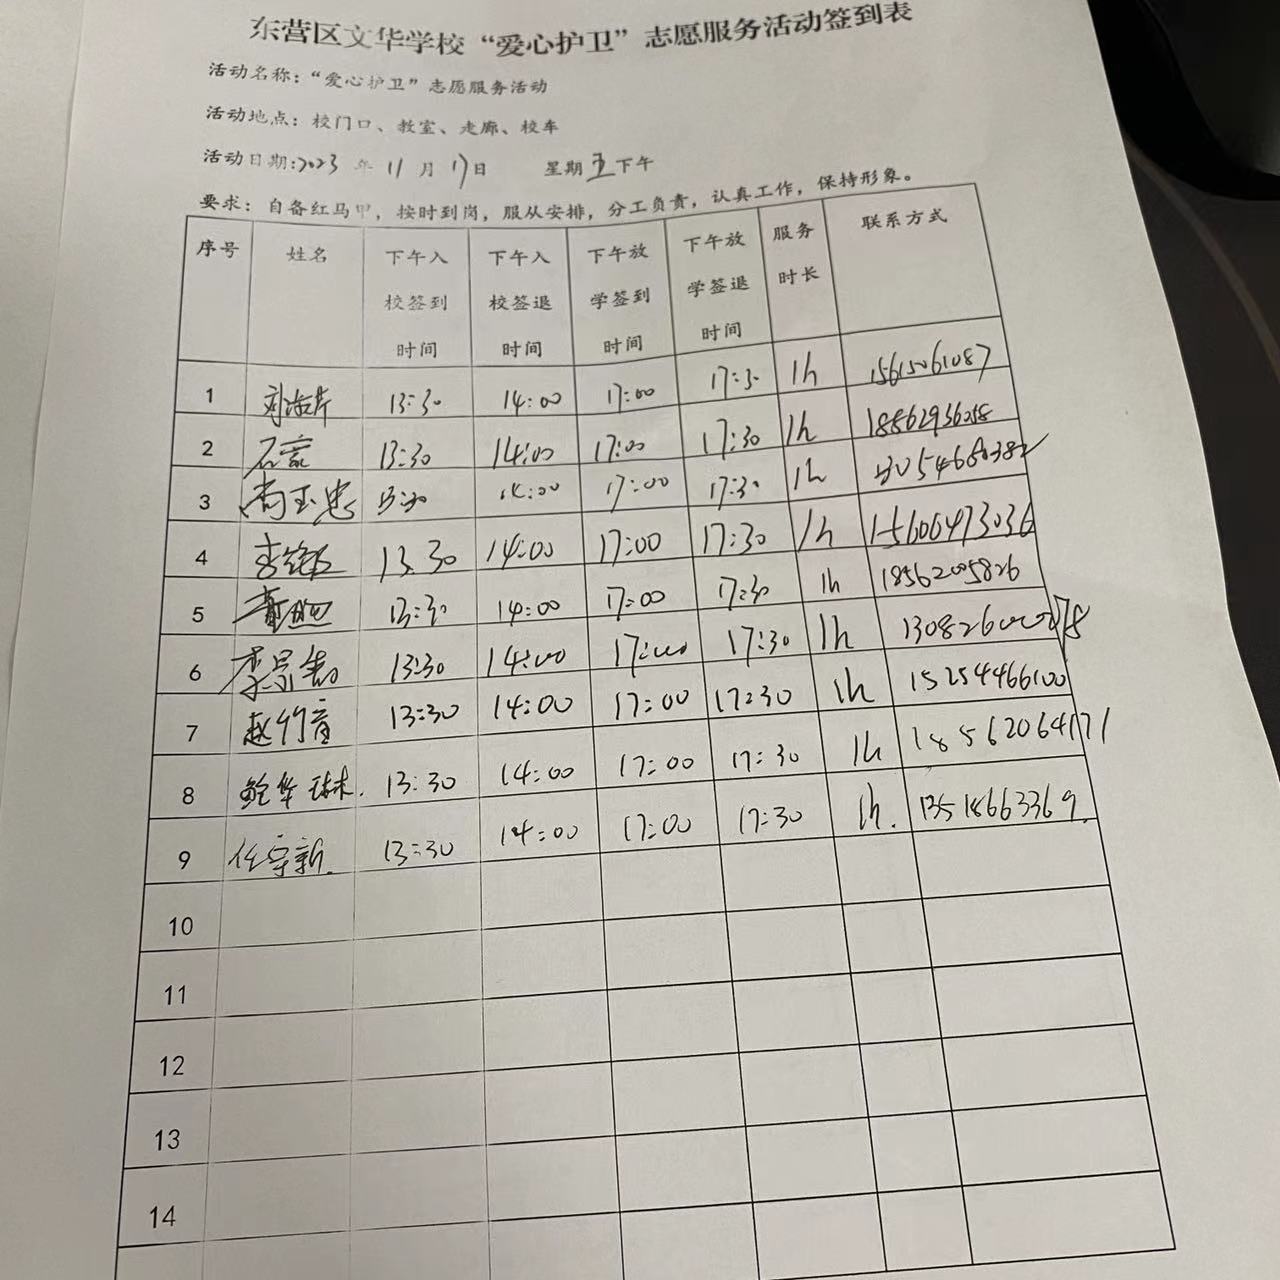 东营区文华学校“爱心护卫”志愿服务活动签到表
活动名称：“爱心护卫”志愿服务活动
活动地点：校门口、教室、走廊、校车
活动日期:2023 年 11 月 17日 星期五下午
要求：自备红马甲，按时到岗，服从安排，分工负责，认真工作，保持形象。
序号 姓名 下午入校签到时间 下午入校签退时间 下午放学签到时间 下午放学签退时间 服务时长 联系方式
1 13:30 14:00 17:00 17:30 1h 15615061087
2 13:30 14:00 17:00 17:30 1h
3 尚玉忠 13:30 14:00 17:00 17:30 1h
4 13:30 14:00 17:00 17:30 1h 15606473036
5 13:30 14:00 17:00 17:30 1h 18562005826
6 13:30 14:00 17:00 17:30 1h
7 赵竹音 13:30 14:00 17:00 17:30 1h 15254466100
8 鲍华琳. 13:30 14:00 17:00 17:30 1h 18562064171
9 任守新. 13:30 14:00 17:00 17:30 1h. 13518663369.
10
11
12
13
14